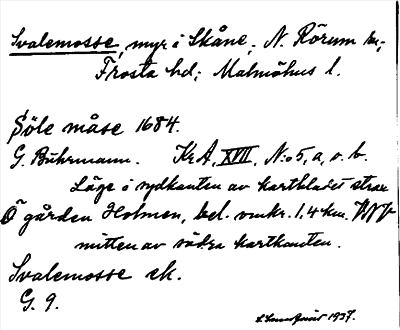 Svalemosse, myr i Skåne. N. Rörum sn;
Frosta hd; Malmöhus l.
Söle måse 1684.
G. Buhrmann. KrA, XVII, No 5, a, o. b.
Läge i sydkanten av kartbladet strax
Ö gården Holmen, bel. omkr. 1,4 km. VNV
mitten av södra kartkanten.
Svalemosse ek.
G. 9.
1937.